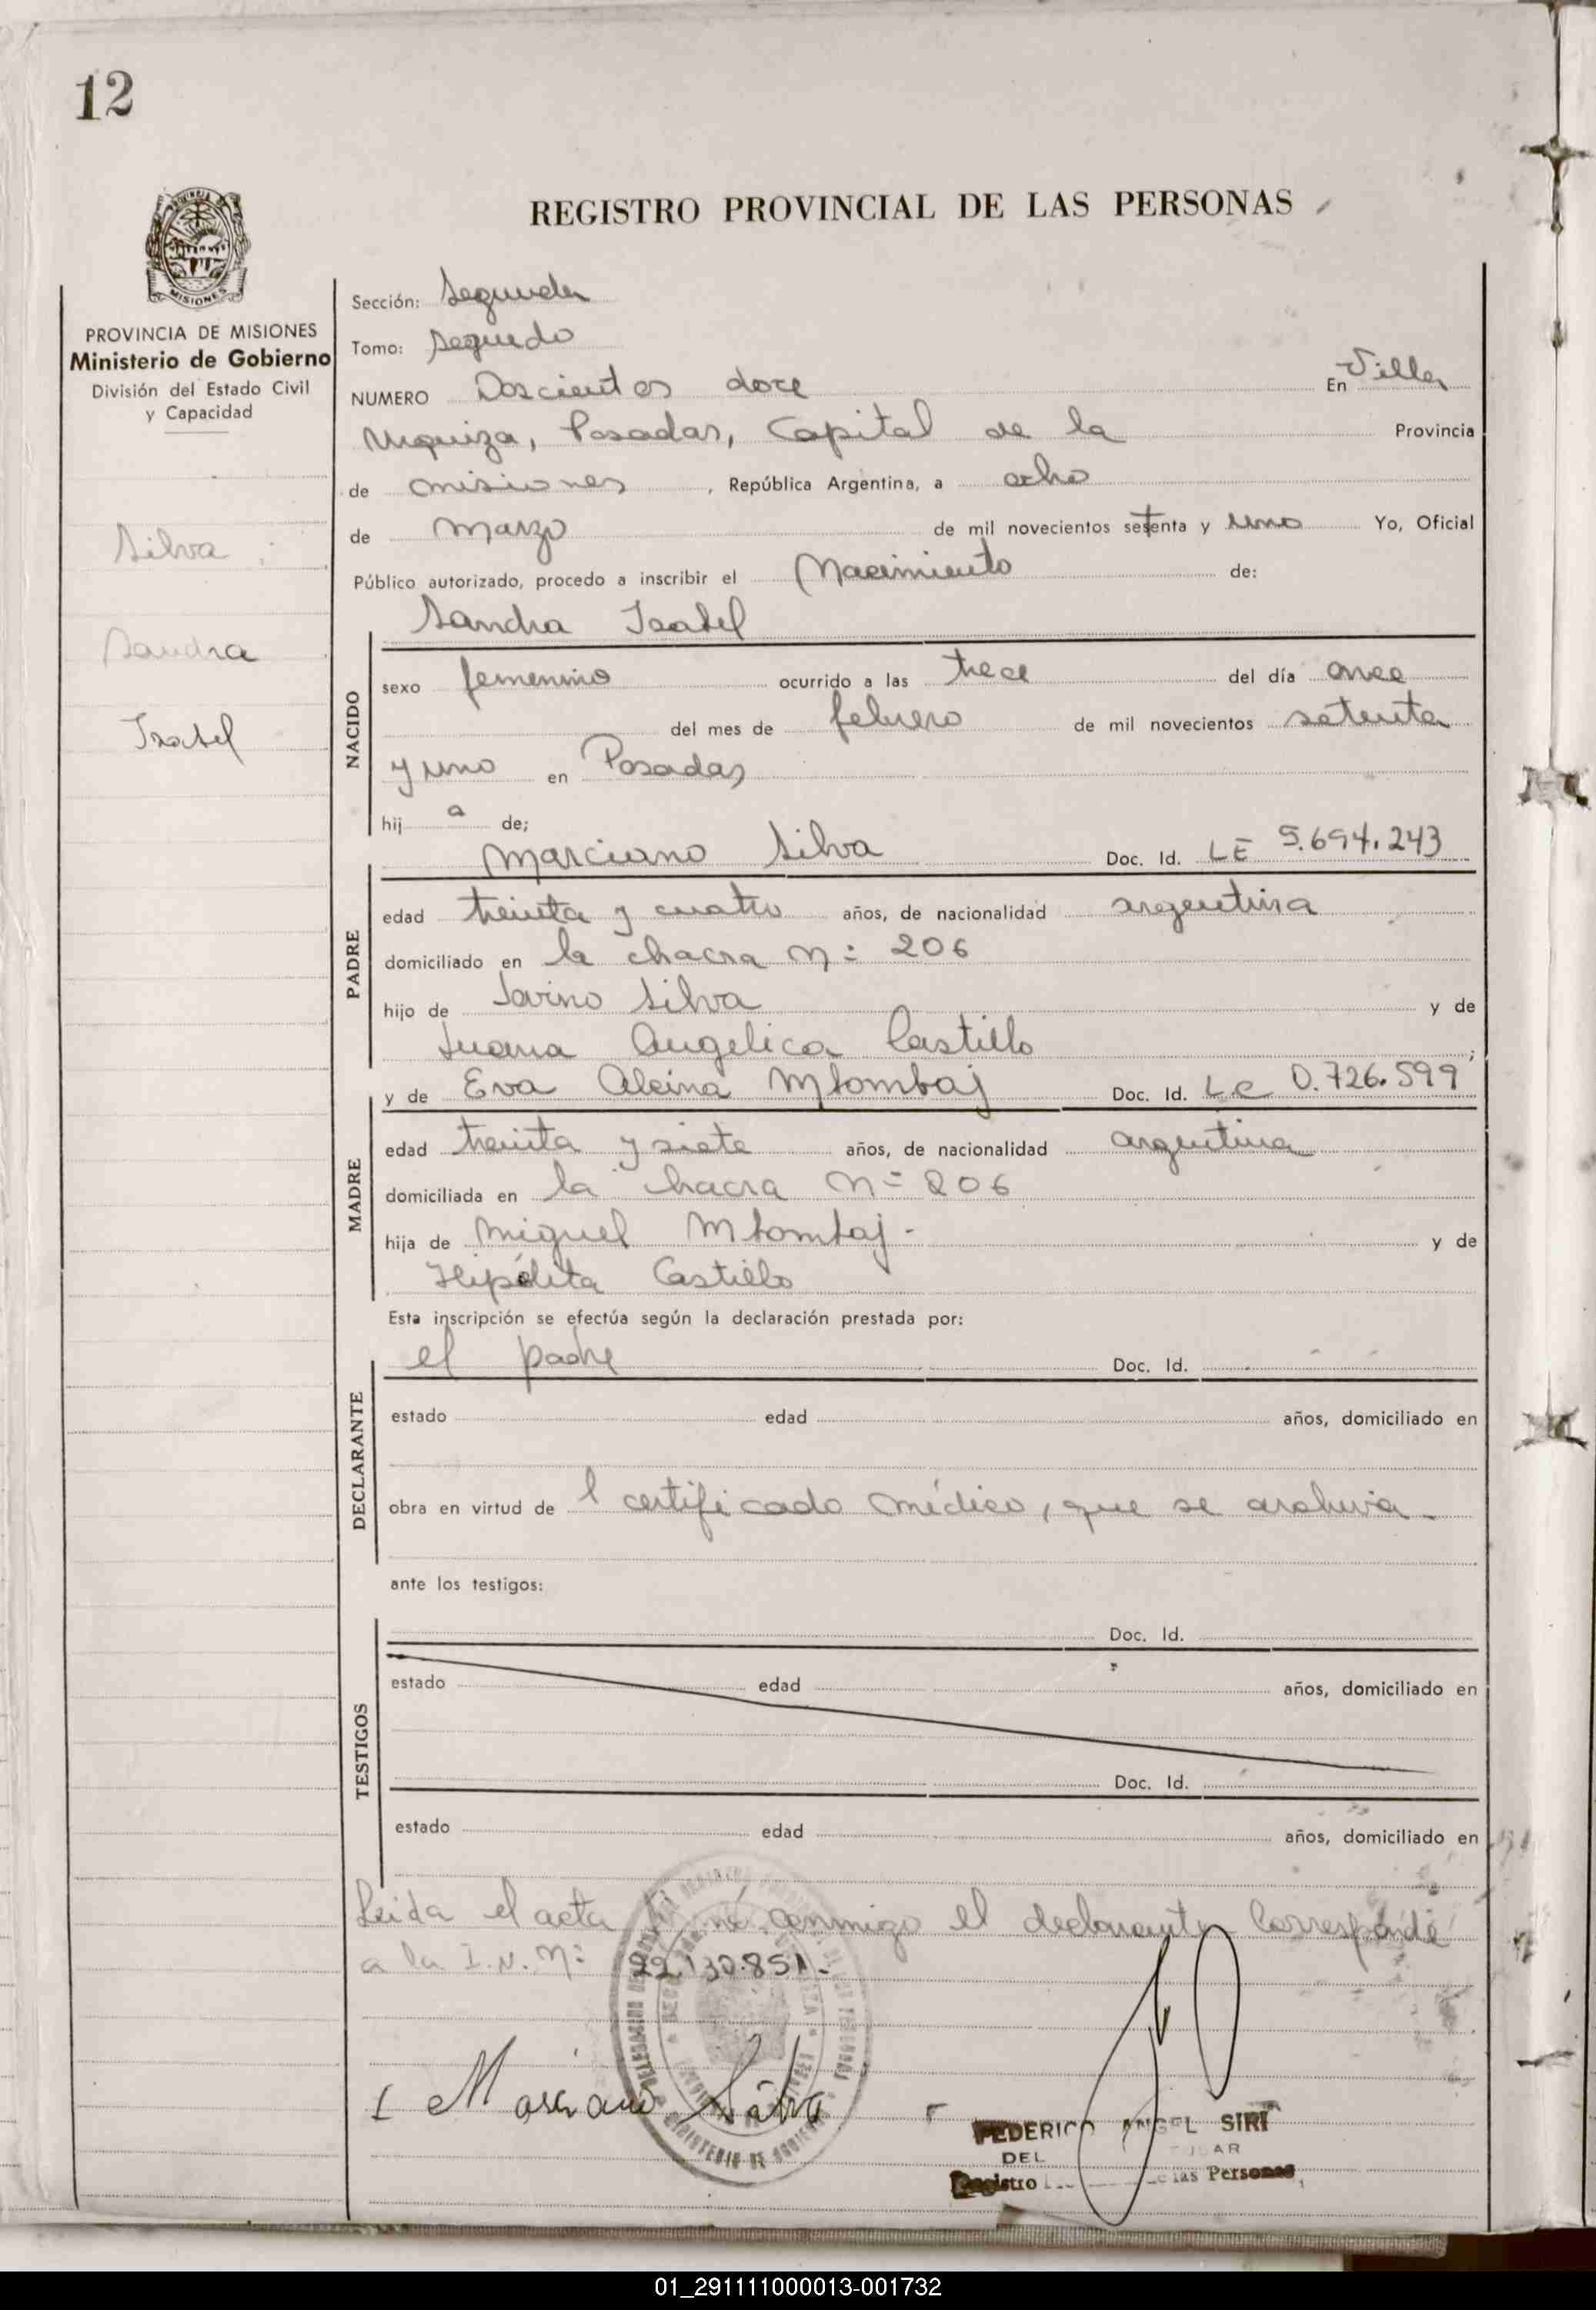 12
REGISTRO PROVINCIAL DE LAS PERSONAS
MISIONES
PROVINCIA DE MISIONES
Ministerio de Gobierno
División del Estado Civil
y Capacidad
Silva
Sandra
Isabel
Sección: Segunda
Tomo: Segundo
NUMERO Doscientos doce En Villa
Urquiza, Posadas, Capital de la Provincia
de Misiones, República Argentina, a ocho
de Marzo de mil novecientos setenta y uno Yo, Oficial
Público autorizado, procedo a inscribir el Nacimiento de:
Sandra Isabel
NACIDO
sexo femenino ocurrido a las trece del día once
del mes de febrero de mil novecientos setenta
y uno en Posadas
hij a de;
Marciano Silva Doc. Id. LE 5.694.243
PADRE
edad treinta y cuatro años, de nacionalidad argentina
domiciliado en la chacra n: 206
hijo de Savino Silva y de
Juana Angelica Castillo;
y de Eva Alcina Mlombaj Doc. Id. LC 0.726.599
MADRE
edad treinta y siete años, de nacionalidad argentina
domiciliada en la chacra n= 206
hija de Miguel Mlombaj - y de
Hipólita Castillo
Esta inscripción se efectúa según la declaración prestada por:
el padre Doc. Id.
DECLARANTE
estado edad años, domiciliado en
obra en virtud de l certificado médico, que se archiva.
ante los testigos:
Doc. Id.
TESTIGOS
estado edad años, domiciliado en
Doc. Id.
estado edad años, domiciliado en
Leida el acta conmigo el declarante Corresponde
a la I.N. n: 22.130.851.-
Marciano Silva
FEDERICO ANGEL SIRI
DEL
Registro las Personas
01_291111000013-001732